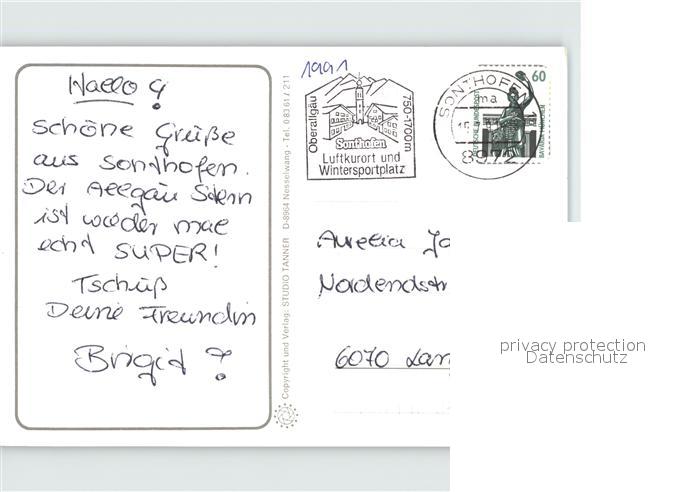 Hallo !
Schöne Grüße
aus Sonthofen.
Der Allgäu Stern
ist wieder mal
echt SUPER!
Tschüß
Deine Freundin
Brigit ?
Copyright und Verlag: STUDIO TANNER D-8964 Nesselwang - Tel. 0 83 61 / 211
1991
Oberallgäu
750-1700m
Sonthofen
Luftkurort und
Wintersportplatz
SONTHOFEN
8972
60
DEUTSCHE BUNDESPOST
Aurelia
Nordendstr
6070 Lan
privacy protection
Datenschutz